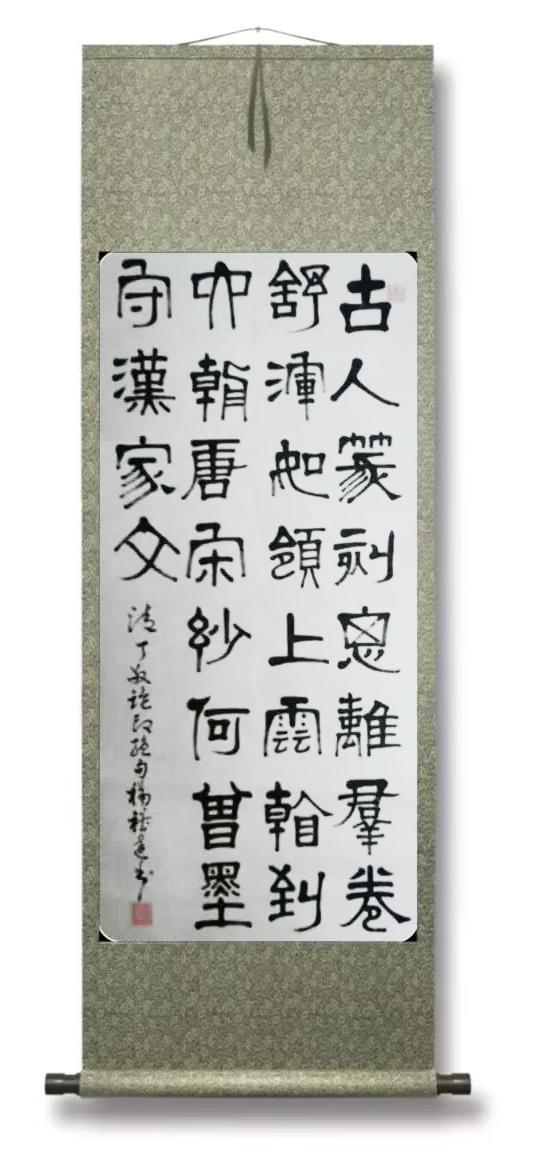 古人篆刻思離羣卷
舒渾如領上雲看到
六朝唐宋玅何曾墨
守漢家文
清丁敬論印絕句楊書